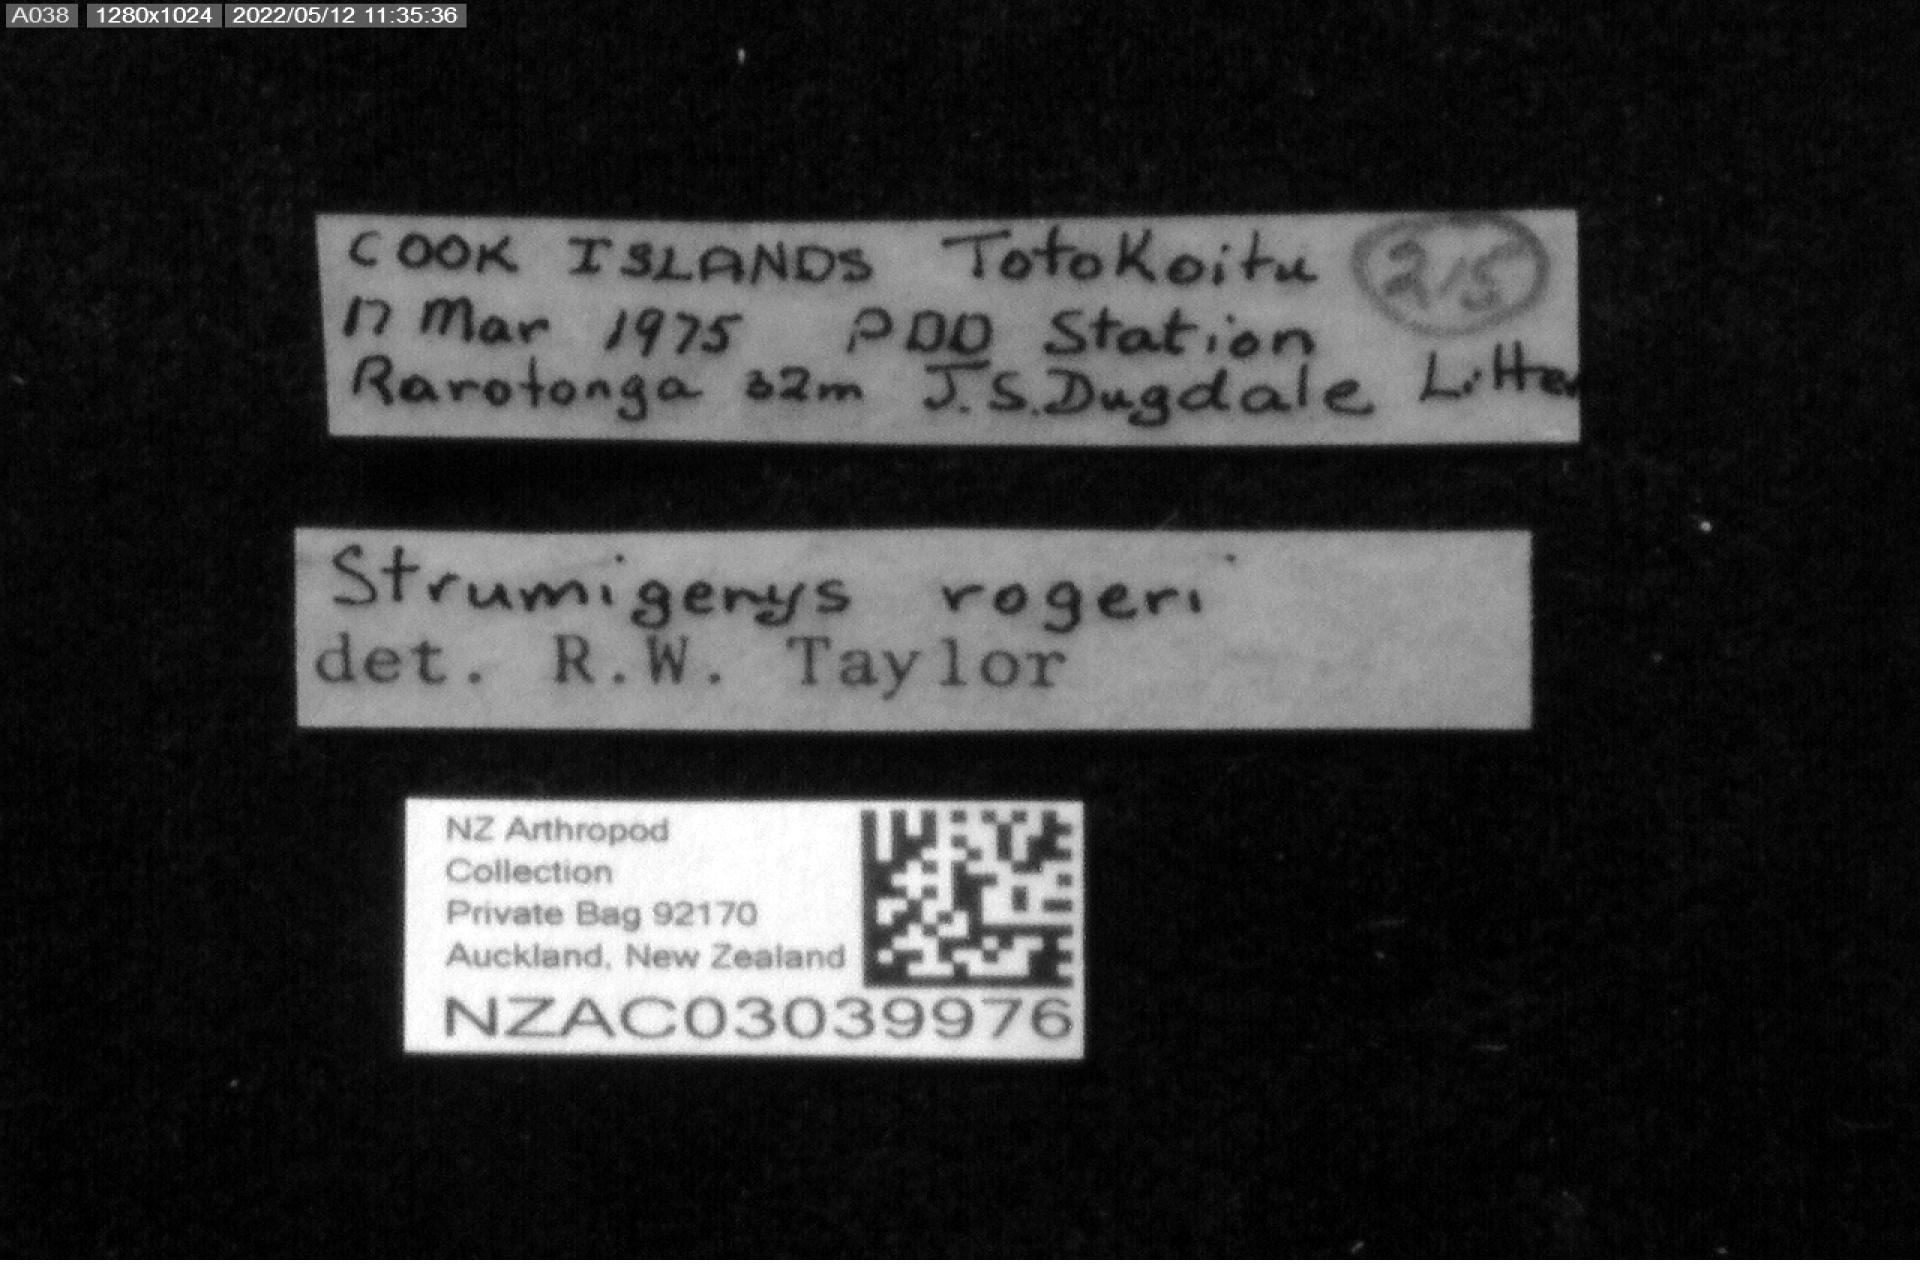 A038 1280x1024 2022/05/12 11:35:36
COOK ISLANDS Totokoitu 215
17 Mar 1975 PDD Station
Rarotonga 32m J.S.Dugdale Litter
Strumigenys rogeri
det. R.W. Taylor
NZ Arthropod
Collection
Private Bag 92170
Auckland, New Zealand
NZAC03039976